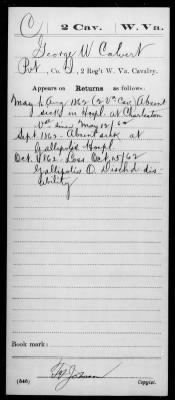 C | 2 Cav. | W. Va.
George W Calvert
Pvt, Co. , 2 Reg't W. Va. Cavalry.
Appears on Returns as follows:
May to Aug 1862 (2 Va Cav) Absent
sick in Hospl. at Charleston
Va. since May 12/62
Sept. 1862 - Absent sick at
Gallipolis Hospl.
Oct. 1862 - Loss Oct. 15/62
Gallipolis O. Disch'd dis-
ability
Book mark:
(546)
Copyist.